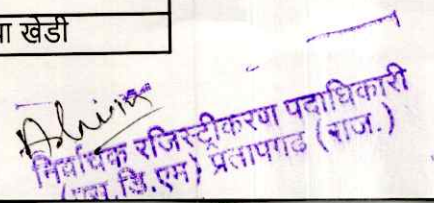 खेडी
निर्वाचक रजिस्ट्रीकरण पदाधिकारी
(एस.डि.एम) प्रतापगढ (राज.)